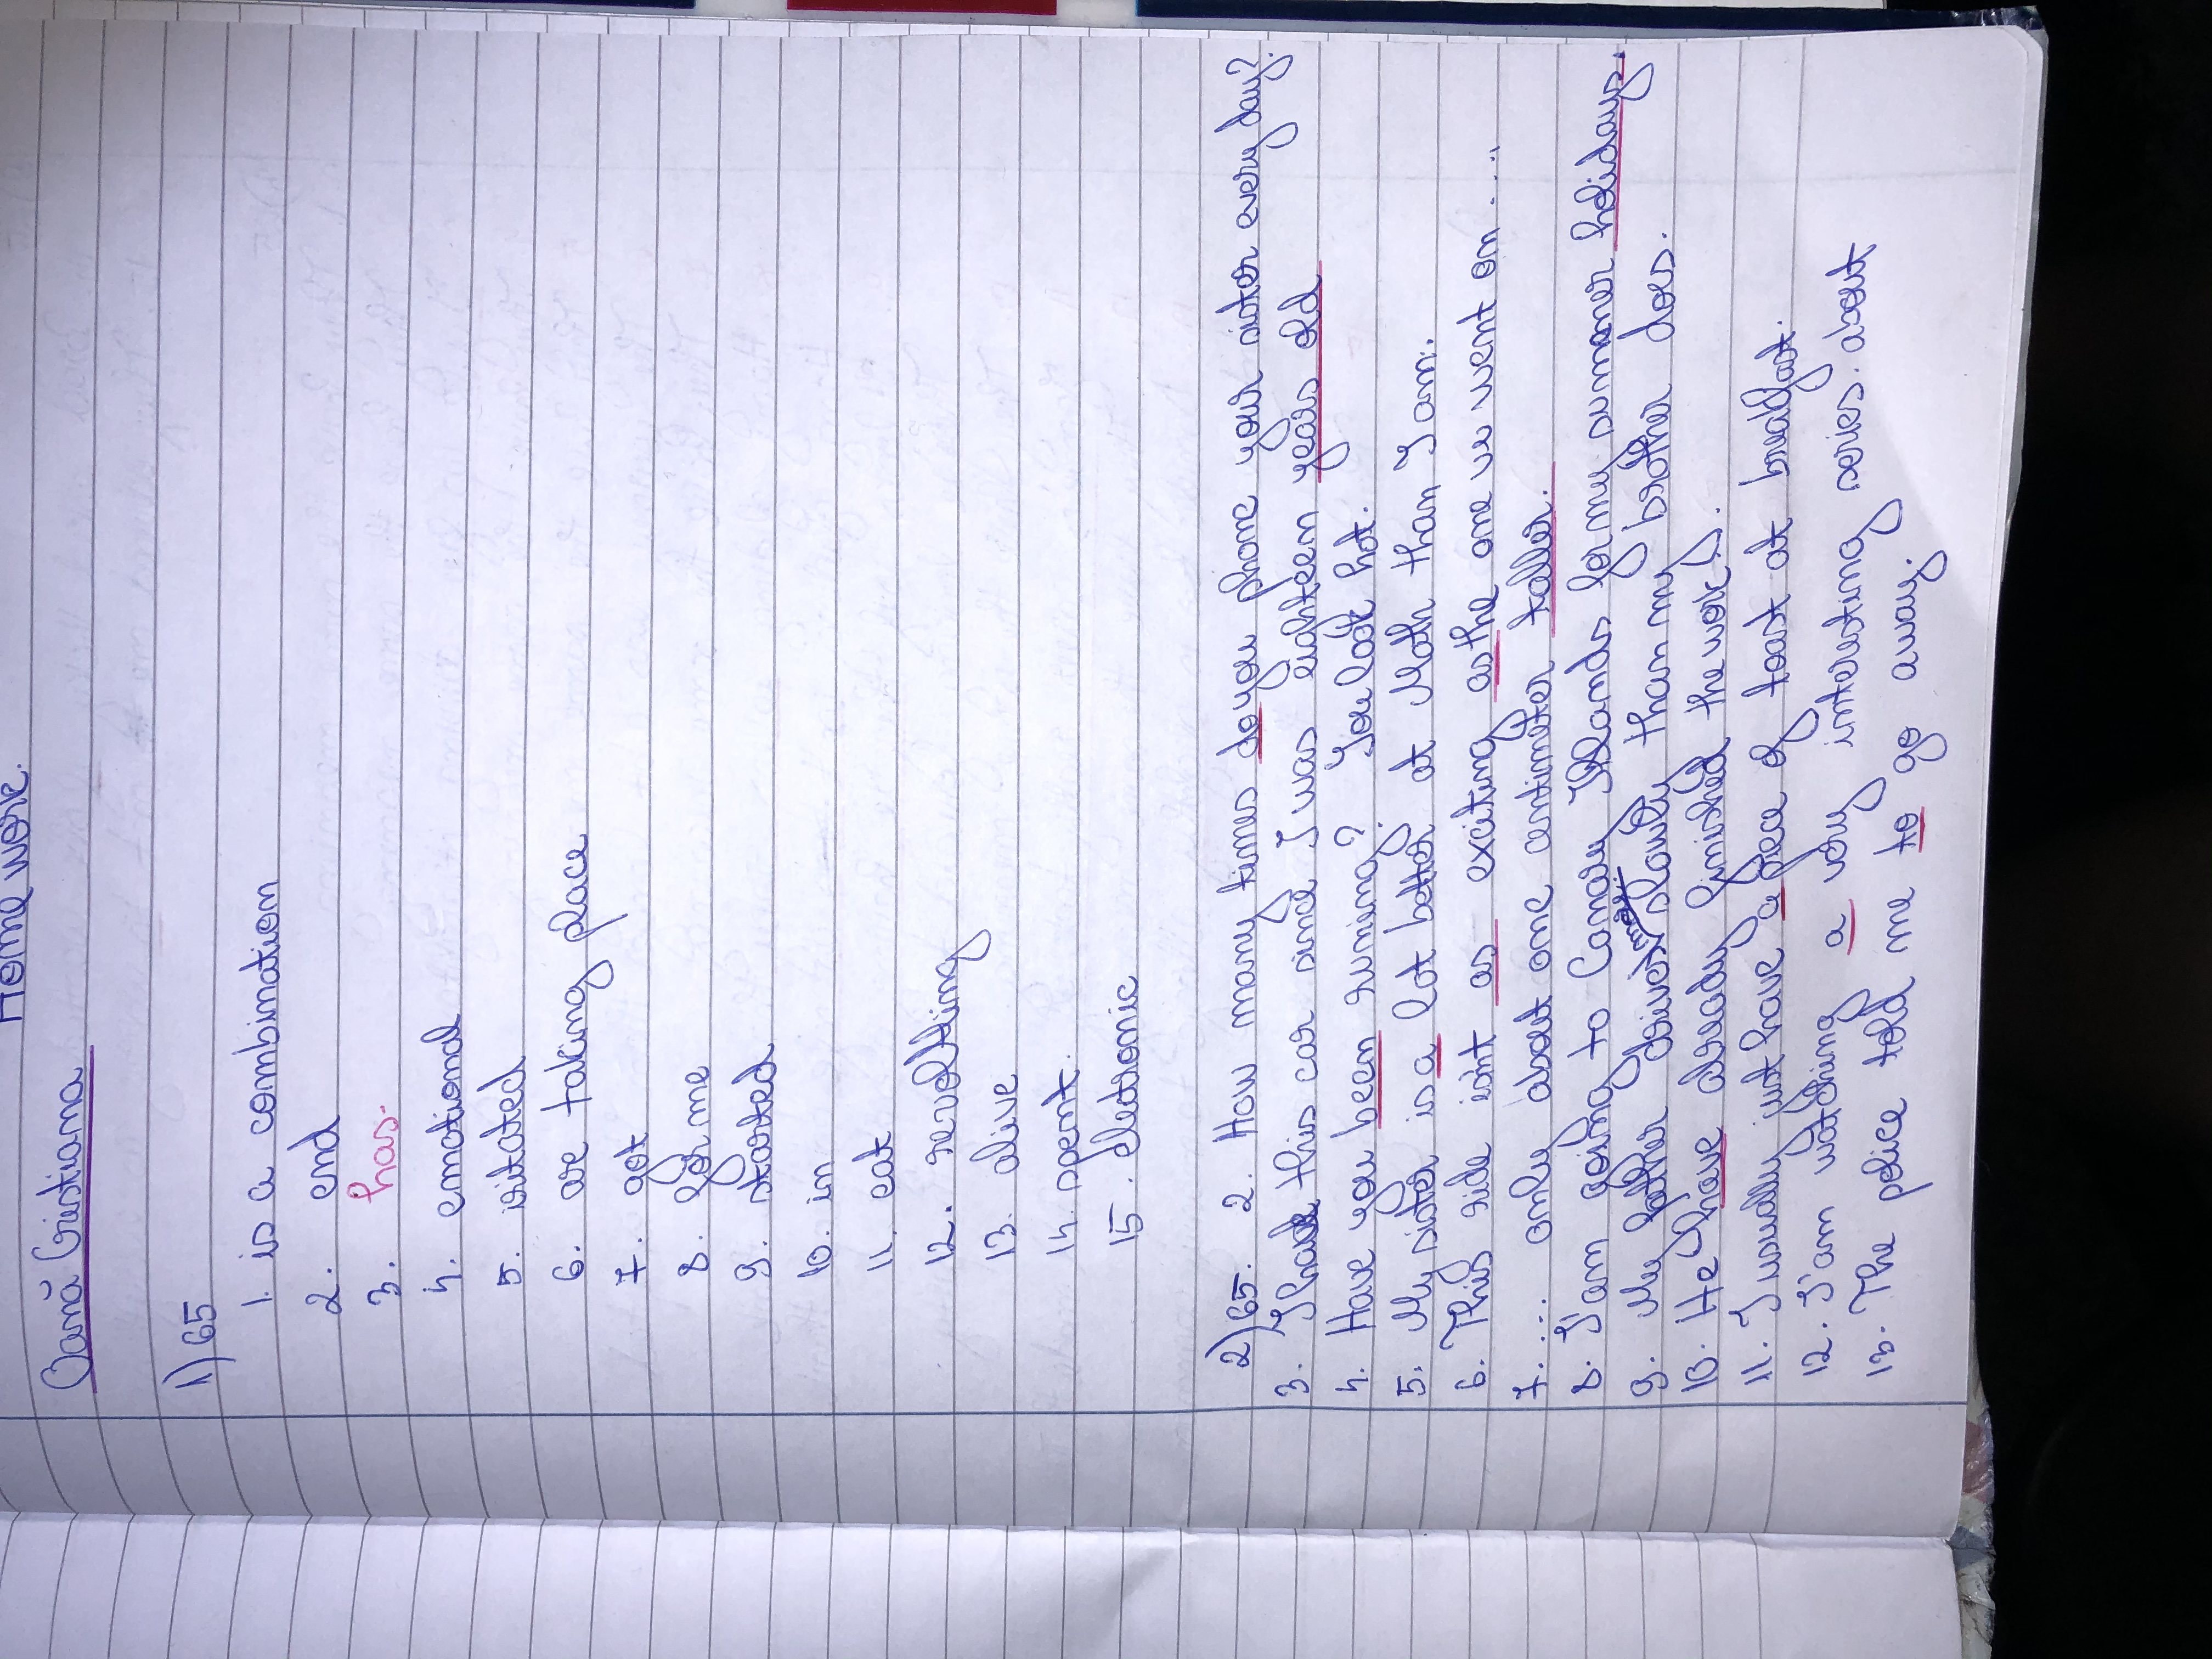 Home work.
Oană Cristiana
1) 65
1. is a combination
2. end
3. has.
4. emotional
5. isitated
6. are taking place
7. got
8. for me
9. started
10. in
11. eat
12. revolting
13. alive
14. spent.
15. eletronic
2) 65. 2. How many times do you phone your sister every day?
3. I have this car since I was eighteen years old
4. Have you been runining? You look hot.
5. My sister is a lot better at Math than I am.
6. This ride isint as exciting as the one we went on ....
7. .... only about one centimeter taller.
8. I'am going to Canary Islands for my summer holidays.
9. My father drives more slowly than my brother does.
10. He have already finished the work.
11. I usually just have a piece of toast at breakfast.
12. I'am watching a very interesting series about
13. The police told me to go away.